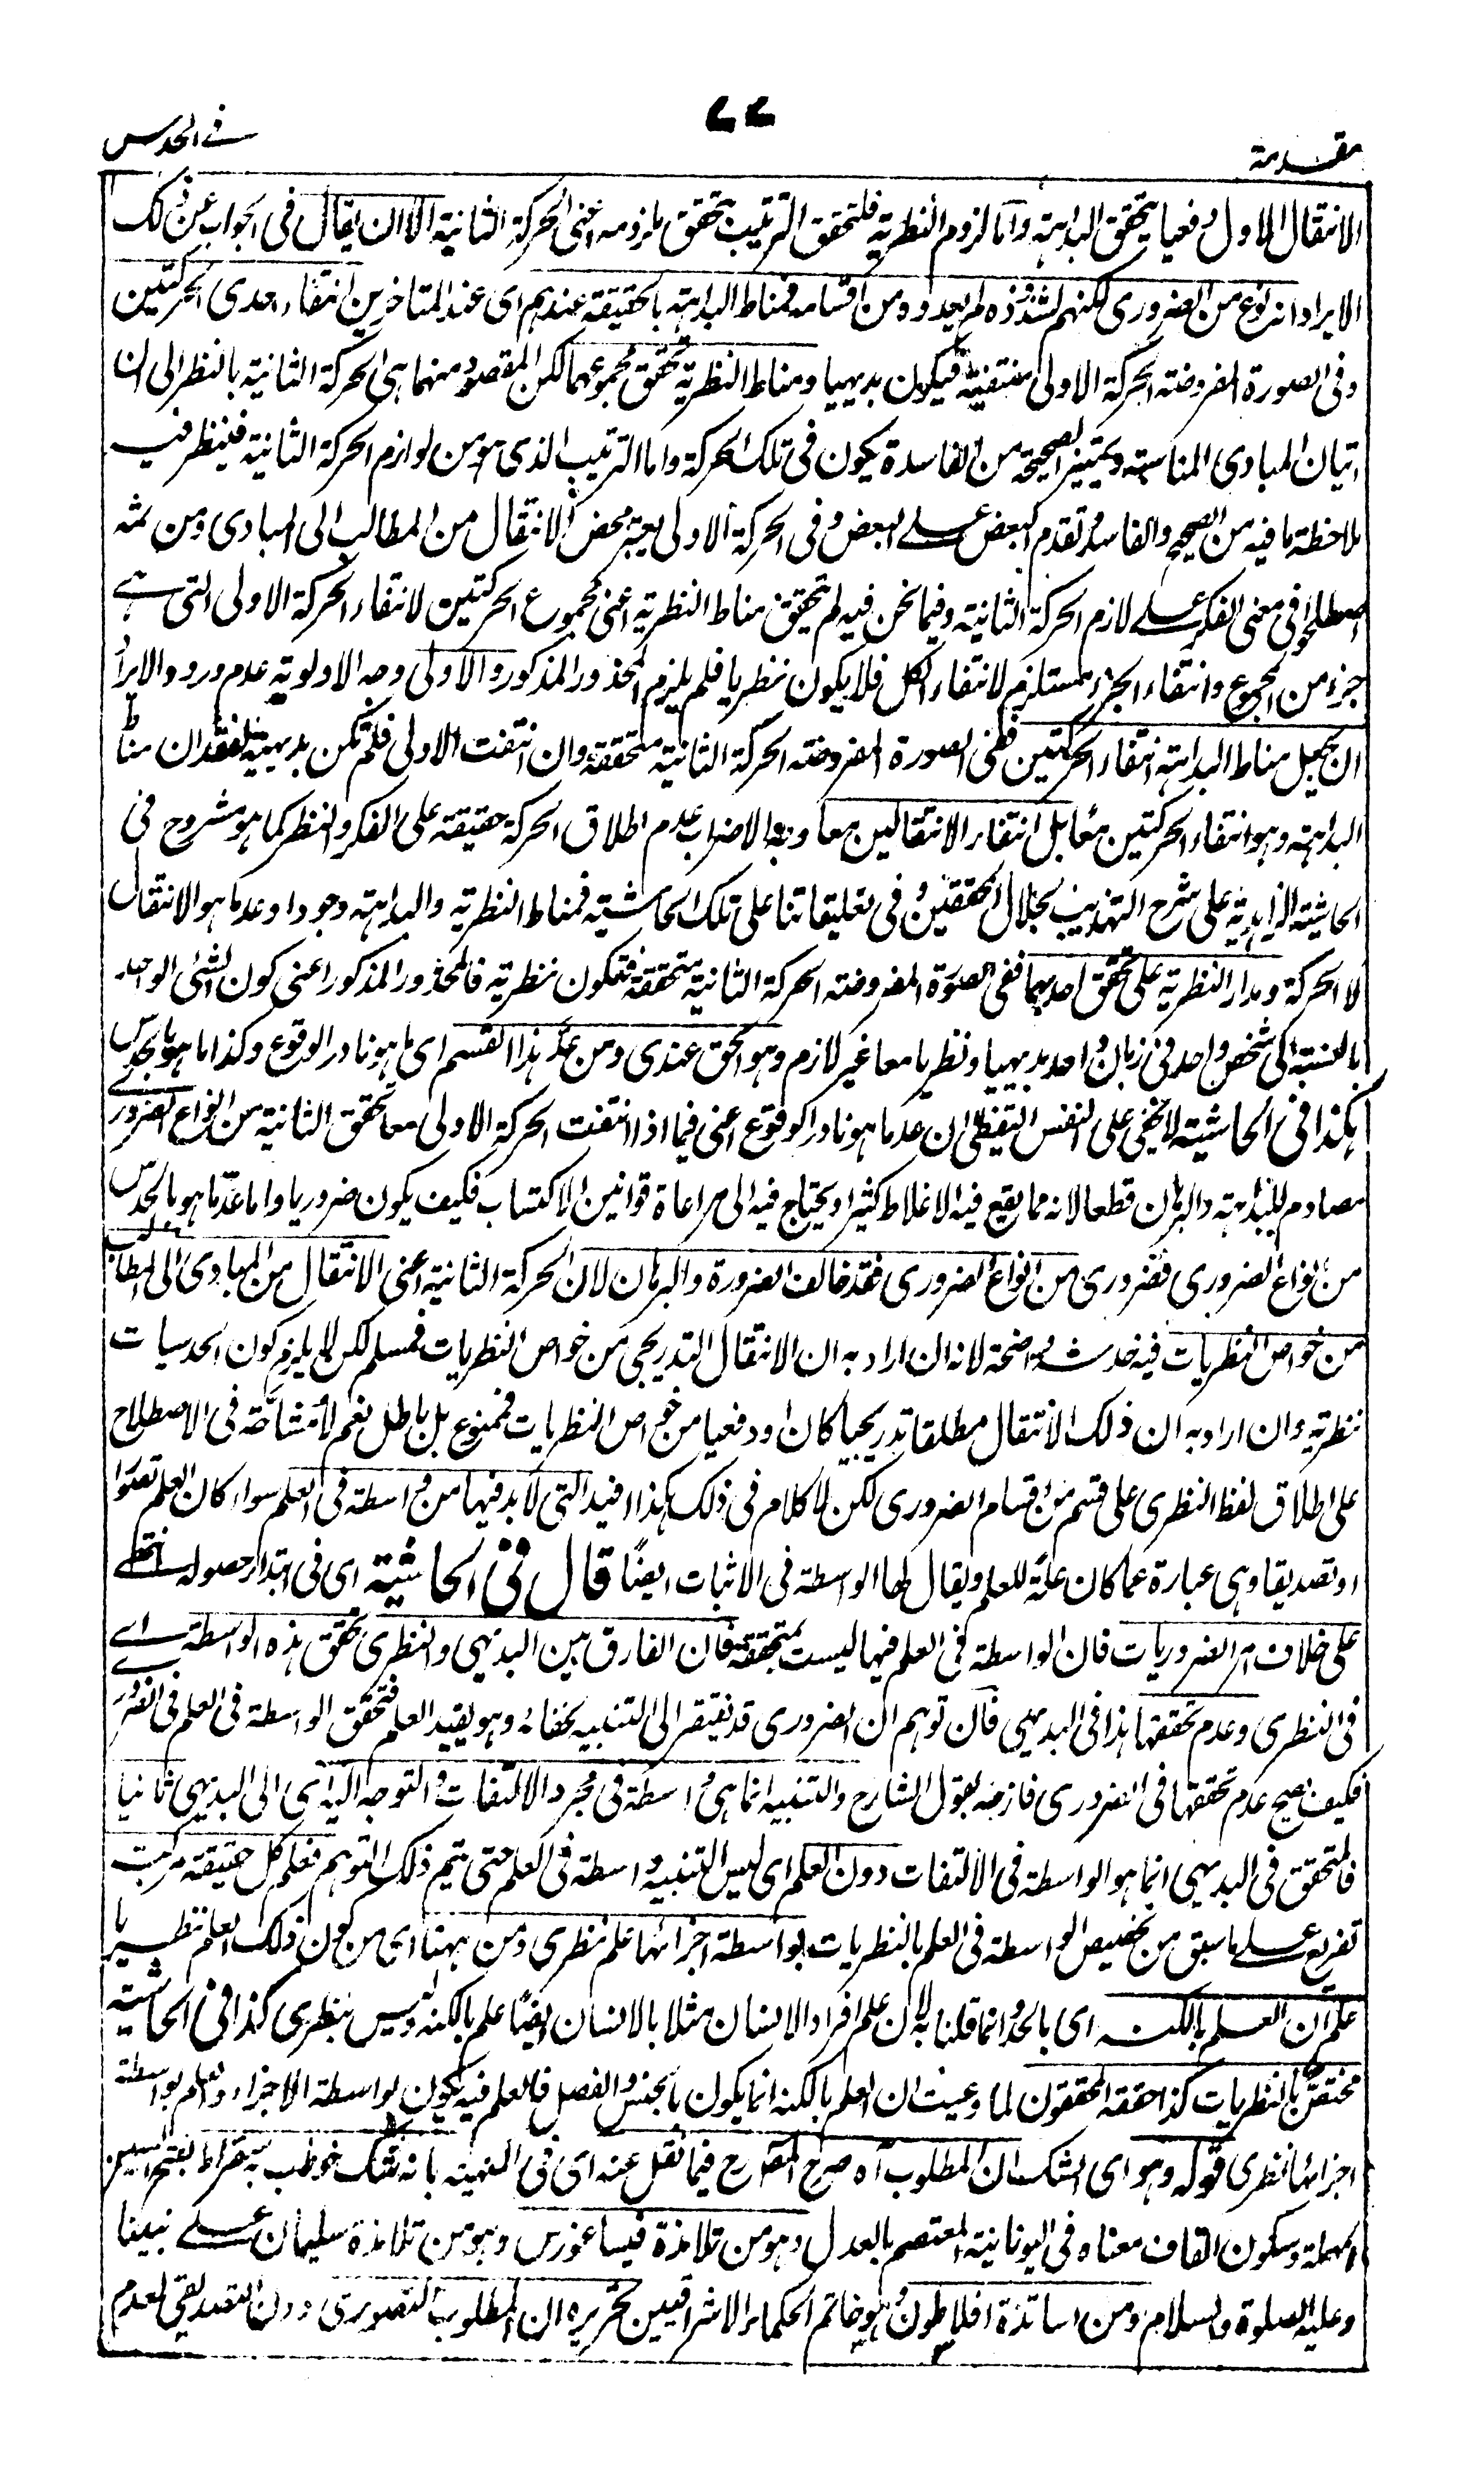 مقدمة
٧٧
فے الحدس
الانتقال الاول دفعيا يتحقق البداهة واما لزوم النظرية فلتحقق الترتيب بتحقق ملزومه اعنى الحركة الثانية الا ان يقال فى الجواب عن ذلك
الايراد انه نوع من الضرورى لكنهم لشذوذه لم يعدوه من اقسامه فمناط البداهة بالحقيقة عندهم اى عند المتاخرين انتفاء احدى الحركتين
وفى الصورة المفروضة الحركة الاولى منتفية فيكون بديهيا ومناط النظرية تحقق مجموعهما لكن المقصود منهما هى الحركة الثانية بالنظر الى ان
اتيان المبادى المناسبة وتمييز الصحيحة من الفاسدة يكون فى تلك الحركة واما الترتيب الذى هو من لوازم الحركة الثانية فينظر فيه
ملاحظة ما فيه من الصحيح والفاسد وتقدم البعض علے البعض وفى الحركة الاولى يعتبر محض الانتقال من المطالب الى المبادى ومن ثمه
اصطلحوا فى معنى الفكر علے لازم الحركة الثانية وفيما نحن فيه لم يتحقق مناط النظرية اعنى مجموع الحركتين لانتفاء الحركة الاولى التى هے
جزء من المجموع وانتفاء الجزء مستلزم لانتفاء الكل فلا يكون نظريا فلم يلزم المحذور المذكور والاولى وجه الاولوية عدم ورود الايراد
ان يجعل مناط البداهة انتفاء الحركتين ففى الصورة المفروضة الحركة الثانية متحققة وان انتفت الاولى فلم تكن بديهية لفقدان مناط
البداهة وهو انتفاء الحركتين معا بل انتفاء الانتقالين معا وجه الاضراب عدم اطلاق الحركة حقيقة على الفكر والنظر كما هو مشروح فى
الحاشية الزاهدية على شرح التهذيب لجلال المحققين وفى تعليقاتنا على تلك الحاشية فمناط النظرية والبداهة وجودا وعدما هو الانتقال
لا الحركة ومدار النظرية على تحقق احدهما ففى الصورة المفروضة الحركة الثانية متحققة فتكون نظرية فالمحذور المذكور اعنى كون الشئ الواحد
بالنسبة الى شخص واحد فى زمان واحد بديهيا ونظريا معا غير لازم وهو الحق عندى ومن عد هذا القسم اى ما هو نادر الوقوع وكذا ما هو بالحدس
هكذا فى الحاشية لا يخفى على النفس اليقظى ان عد ما هو نادر الوقوع اعنى فيما اذا انتفت الحركة الاولى مع تحقق الثانية من انواع الضرورے
مصادم للبداهة والبرهان قطعا لانه مما يقع فيه الاغلاط كثيرا ويحتاج فيه الى مراعاة قوانين الاكتساب فكيف يكون ضروريا واما عد ما هو بالحدس
من انواع الضرورى فضرورى من انواع الضرورى فقد خالف الضرورة والبرهان لان الحركة الثانية اعنى الانتقال من المبادى الى المطالب
من خواص النظريات فيه خدشة واضحة لانه ان اراد به ان الانتقال التدريجى من خواص النظريات فمسلم لكن لا يلزم كون الحدسيات
نظرية وان اراد به ان ذلك الانتقال مطلقا تدريجيا كان او دفعيا من خواص النظريات فممنوع بل باطل نعم لا مشاحة فى الاصطلاح
على اطلاق لفظ النظرى على قسم من اقسام الضرورى لكن لا كلام فى ذلك هكذا افيد التى لا بد فيها من واسطة فى العلم سواء كان العلم تصورا
او تصديقا وهى عبارة عما كان علة للعلم ويقال لها الواسطة فى الاثبات ايضا قال فى الحاشية اى فى ابتداء حصوله انتهے
على خلاف امر الضروريات فان الواسطة فى العلم فيها ليست بمتحققة فان الفارق بين البديهى والنظرى تحقق هذه الواسطة اے
فى النظرى وعدم تحققها هذا فى البديهى فان توهم ان الضرورى قد يفتقر الى التنبيه لخفائه وهو يفيد العلم فتحقق الواسطة فى العلم فى الضرورے
فكيف يصح عدم تحققها فى الضرورى فازحه بقول الشارح والتنبيه انما هى واسطة فى مجرد الالتفات والتوجه اليه اى الى البديهى ثانيا
فالمتحقق فى البديهى انما هو الواسطة فى الالتفات دون العلم اى ليس التنبيه واسطة فى العلم حتى يتم ذلك التوهم فعلم كل حقيقة مركبة
تفريع علے ما سبق من تخصيص الواسطة فى العلم بالنظريات بواسطة اجزائها علم نظرى ومن ههنا اى من كون ذلك العلم نظريا
علم ان العلم بالكنه اى بالحد وانما قلنا به لان علم افراد الانسان مثلا بالانسان ايضا علم بالكنه وليس بنظرى كذا فى الحاشية
مختص بالنظريات كذا حققه المحققون لما وعيت ان العلم بالكنه انما يكون بالجنس والفصل فالعلم فيه يكون بواسطة الاجزاء والعلم بواسطة
اجزائها نظرى قوله وهو اى الشك ان المطلوب آه صرح المصرح فيما نقل عنه اى فى المنهية بانه شك خوطب به سقراط بفتح السين
المهملة وسكون القاف معناه فى اليونانية المعتصم بالعدل وهو من تلامذة فيساغورس وهو من تلامذة سليمان علے نبينا
وعليه الصلوة والسلام ومن اساتذة افلاطون هو خاتم الحكماء الاشراقيين تحريره ان المطلوب التصورى دون التصديقى لعدم